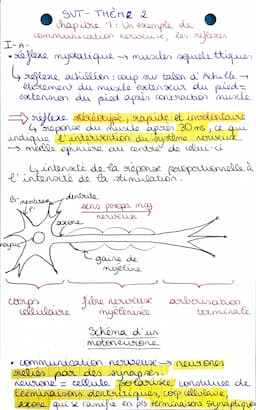 SVT - THÈME 2
Chapitre 1: Un exemple de
communication nerveuse, les réflexes
I - A -
• réflexe myotatique → muscles squelettiques
↳ réflexe achilléen: coup sur talon d'Achille →
étirement du muscle extenseur du pied =
extension du pied après contraction muscle
⇒ réflexe stéréotypé, rapide et involontaire
↳ réponse du muscle après 30 ms, ce qui
indique l'intervention du système nerveux.
→ moelle épinière au centre de celui-ci
↳ intensité de la réponse proportionnelle à
l'intensité de la stimulation.
B-
membrane
dendrite
sens propa msg
nerveux
axone
noyau
gaine de
myéline
corps
cellulaire
fibre nerveuse
myélinisée
arborisation
terminale
Schéma d'un
motoneurone
• communication nerveuse → neurones
reliés par des synapses.
neurone = cellule polarisée constituée de
terminaisons dendritiques, corp cellulaire,
axone qui se ramifie en pls terminaisons synaptiques